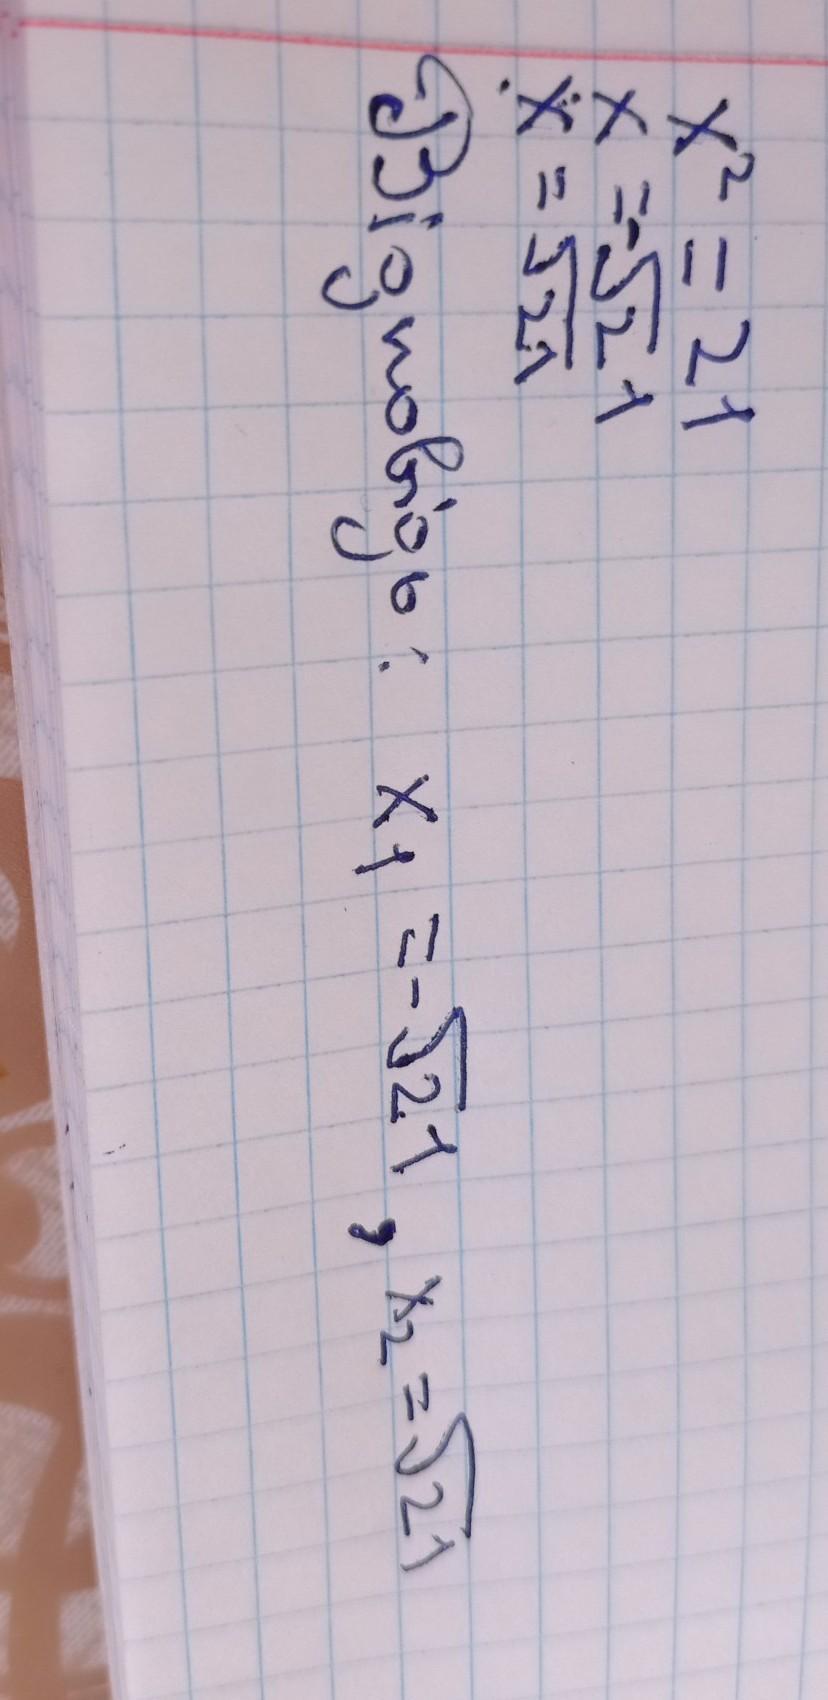 x² = 21
x = -√21
x = √21
Відповідь: x₁ = -√21, x₂ = √21